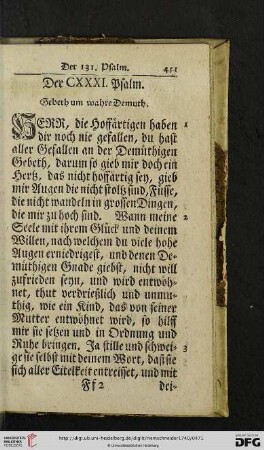 Der 131. Psalm. 451
Der CXXXI. Psalm.
Gebeth um wahre Demuth.
HERR, die Hoffärtigen haben 1
dir noch nie gefallen, du hast
aller Gefallen an der Demüthigen
Gebeth, darum so gieb mir doch ein
Hertz, das nicht hoffärtig sey, gieb
mir Augen die nicht stoltz sind, Füsse,
die nicht wandeln in grossen Dingen,
die mir zu hoch sind. Wann meine 2
Seele mit ihrem Glück und deinem
Willen, nach welchem du viele hohe
Augen erniedrigest, und denen De-
müthigen Gnade giebst, nicht will
zufrieden seyn, und wird entwöh-
net, thut verdrießlich und unmu-
thig, wie ein Kind, das von seiner
Mutter entwöhnet wird, so hilff
mir sie setzen und in Ordnung und
Ruhe bringen. Ja stille und schwei- 3
ge sie selbst mit deinem Wort, daß sie
sich aller Eitelkeit entreisset, und mit
Ff 2 dei-
http://digi.ub.uni-heidelberg.de/diglit/hemschneider1740/0471
© Universitätsbibliothek Heidelberg
UNIVERSITÄTS-
BIBLIOTHEK
HEIDELBERG
gefördert durch die
DFG